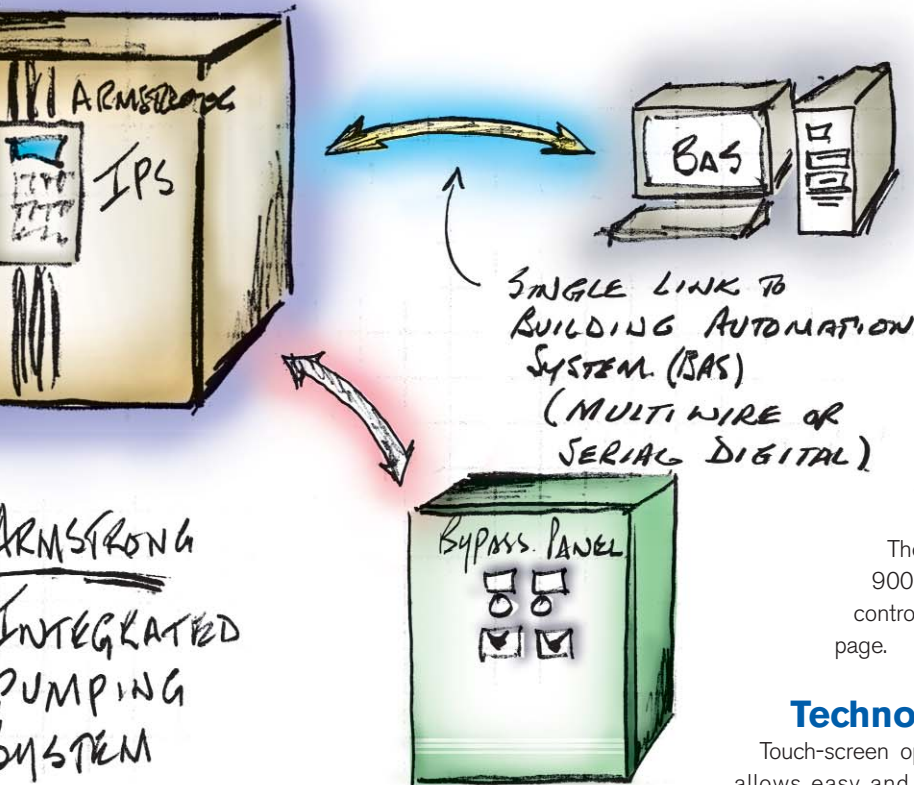 ARMSTRONG
IPS
BAS
SINGLE LINK TO
BUILDING AUTOMATION
SYSTEM. (BAS)
(MULTI WIRE OR
SERIAL DIGITAL)
BYPASS PANEL
ARMSTRONG
INTEGRATED
PUMPING
SYSTEM
The
900
contro
page.
Techno
Touch-screen op
allows easy and